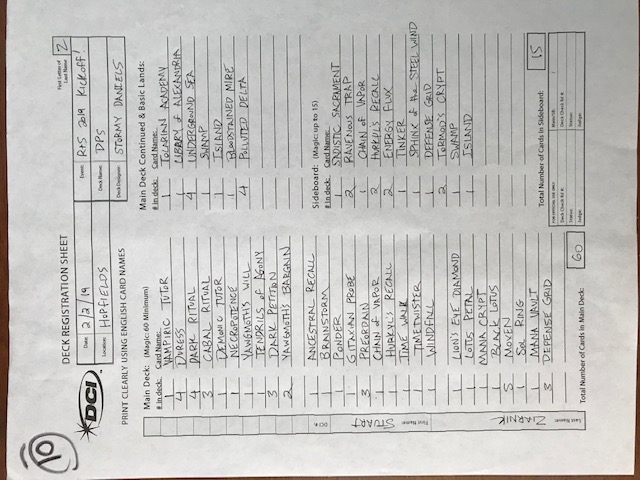 10
DECK REGISTRATION SHEET
First Letter of Last Name Z
DCI
Date: 2/2/19
Event: R+S 2019 KICKOFF!
Location: HOPFIELDS
Deck Name: DPS
Deck Designer: STORMY DANIELS
PRINT CLEARLY USING ENGLISH CARD NAMES
Main Deck: (Magic: 60 Minimum)
# in deck: Card Name:
1 VAMPIRIC TUTOR
4 DURESS
4 DARK RITUAL
3 CABAL RITUAL
1 DEMONIC TUTOR
1 NECROPOTENCE
1 YAWGMOTH'S WILL
1 TENDRILS OF AGONY
3 DARK PETITION
2 YAWGMOTH'S BARGAIN
1 ANCESTRAL RECALL
1 BRAINSTORM
1 PONDER
1 GITAXIAN PROBE
3 PREORDAIN
1 CHAIN OF VAPOR
1 HURKYL'S RECALL
1 TIME WALK
1 TIMETWISTER
1 WINDFALL
1 LION'S EYE DIAMOND
1 LOTUS PETAL
1 MANA CRYPT
1 BLACK LOTUS
5 MOXEN
1 SOL RING
1 MANA VAULT
3 DEFENSE GRID
Total Number of Cards in Main Deck: 60
Main Deck Continued & Basic Lands:
# in deck: Card Name:
1 TOLARIAN ACADEMY
1 LIBARY OF ALEXANDRIA
4 UNDERGROUND SEA
1 SWAMP
1 ISLAND
1 BLOODSTAINED MIRE
4 POLLUTED DELTA
Sideboard: (Magic: up to 15)
# in deck: Card Name:
1 SADISTIC SACRAMENT
2 RAVENOUS TRAP
1 CHAIN OF VAPOR
2 HURKYL'S RECALL
2 ENERGY FLUX
1 TINKER
1 SPHINX of the STEEL WIND
1 DEFENSE GRID
2 TORMOD'S CRYPT
1 SWAMP
1 ISLAND
Total Number of Cards in Sideboard: 15
FOR OFFICIAL USE ONLY
Main/SB: /
Deck Check Rd #:
Deck Check Rd #:
Status:
Status:
Judge:
Judge:
Last Name: ZIARNIK
First Name: STUART
DCI #: